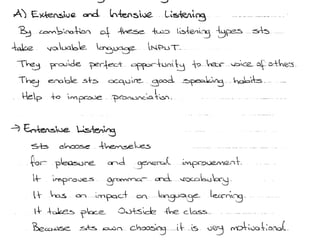 A) Extensive and Intensive Listening
By combination of these two listening types sts
take valuable language INPUT.
They provide perfect opportunity to hear voice of others
They enable sts acquire good speaking habits.
Help to improve pronunciation.
→ Extensive Listening
Sts choose themselves
for pleasure and general improvement.
It improves grammar and vocabulary.
It has an impact on language learning.
It takes place outside the class.
Because sts own choosing it is very motivational